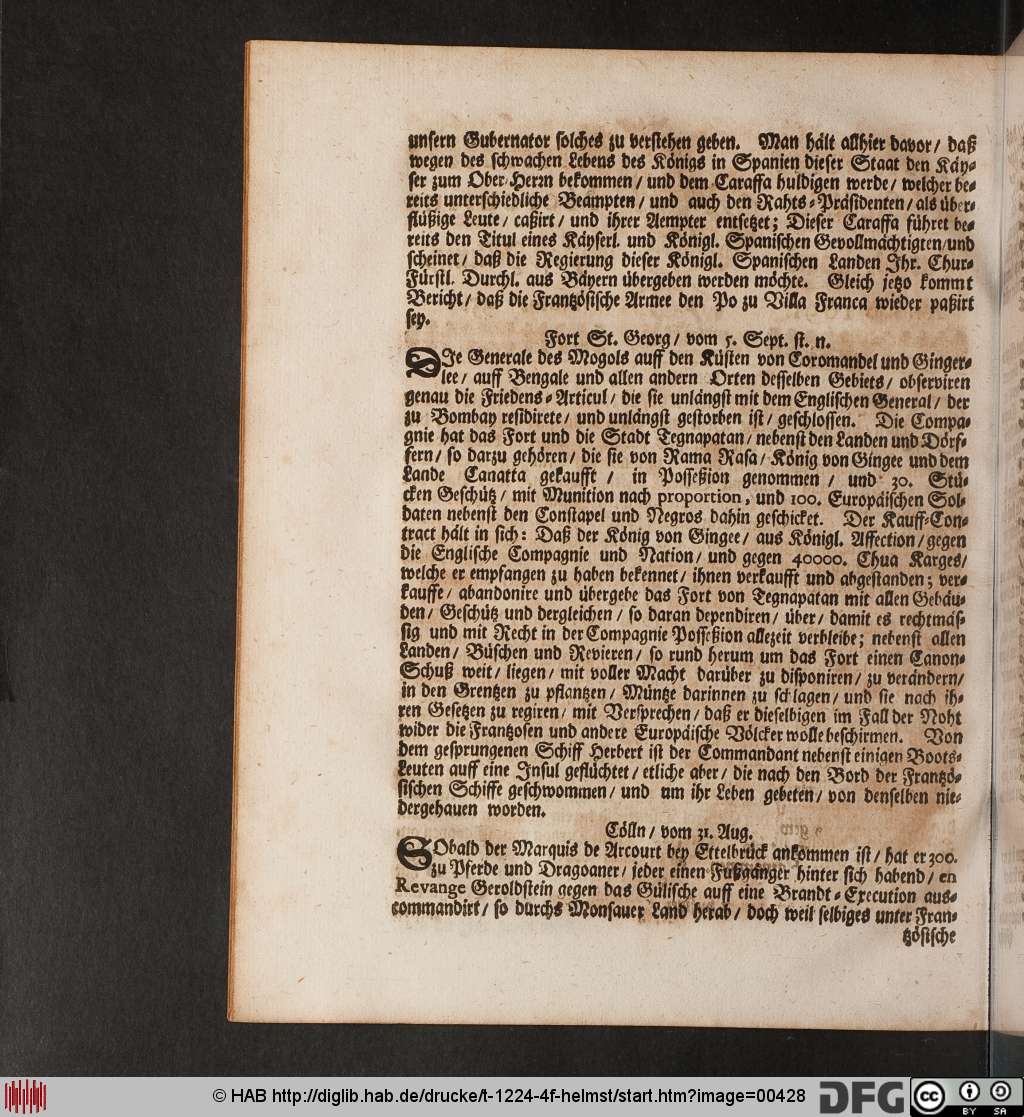 unsern Gubernator solches zu verstehen geben. Man hält allhier davor / daß
wegen des schwachen Lebens des Königs in Spanien dieser Staat den Käy-
ser zum Ober-Herrn bekommen / und dem Caraffa huldigen werde / welcher be-
reits unterschiedliche Beampten / und auch den Rahts-Präsidenten / als über-
flüßige Leute / caßirt / und ihrer Aempter entsetzet; Dieser Caraffa führet be-
reits den Titul eines Käyserl. und Königl. Spanischen Gevollmächtigten / und
scheinet / daß die Regierung dieser Königl. Spanischen Landen Ihr. Chur-
Fürstl. Durchl. aus Bäyern übergeben werden möchte. Gleich jetzo kommt
Bericht / daß die Frantzösische Armee den Po zu Villa Franca wieder paßirt
sey.
Fort St. Georg / vom 5. Sept. st. n.
DIe Generale des Mogols auff den Küsten von Coromandel und Ginger-
lee / auff Bengale und allen andern Orten desselben Gebiets / observiren
genau die Friedens-Articul / die sie unlängst mit dem Englischen General / der
zu Bombay residirete / und unlängst gestorben ist / geschlossen. Die Compa-
gnie hat das Fort und die Stadt Tegnapatan / nebenst den Landen und Dörf-
fern / so darzu gehören / die sie von Rama Rasa / König von Gingee und dem
Lande Canatta gekaufft / in Posseßion genommen / und 30. Stü-
cken Geschütz / mit Munition nach proportion, und 100. Europäischen Sol-
daten nebenst den Constapel und Negros dahin geschicket. Der Kauff-Con-
tract hält in sich: Daß der König von Gingee / aus Königl. Affection / gegen
die Englische Compagnie und Nation / und gegen 40000. Chua Karges /
welche er empfangen zu haben bekennet / ihnen verkaufft und abgestanden; ver-
kauffe / abandonire und übergebe das Fort von Tegnapatan mit allen Gebäu-
den / Geschütz und dergleichen / so daran dependiren / über / damit es rechtmäs-
sig und mit Recht in der Compagnie Posseßion allezeit verbleibe; nebenst allen
Landen / Büschen und Revieren / so rund herum um das Fort einen Canon-
Schuß weit / liegen / mit voller Macht darüber zu disponiren / zu verändern /
in den Grentzen zu pflantzen / Müntze darinnen zu schlagen / und sie nach ih-
ren Gesetzen zu regiren / mit Versprechen / daß er dieselbigen im Fall der Noht
wider die Frantzosen und andere Europäische Völcker wolle beschirmen. Von
dem gesprungenen Schiff Herbert ist der Commandant nebenst einigen Boots-
Leuten auff eine Insul geflüchtet / etliche aber / die nach den Bord der Frantzö-
sischen Schiffe geschwommen / und um ihr Leben gebeten / von denselben nie-
dergehauen worden.
Cölln / vom 31. Aug.
SObald der Marquis de Arcourt bey Ettelbrück ankommen ist / hat er 300.
zu Pferde und Dragoaner / jeder einen Fußgänger hinter sich habend / en
Revange Geroldstein gegen das Gülische auff eine Brandt-Execution aus-
commandirt / so durchs Monsauer Land herab / doch weil selbiges unter Fran-
tzösische
© HAB http://diglib.hab.de/drucke/t-1224-4f-helmst/start.htm?image=00428
DFG
cc
BY SA